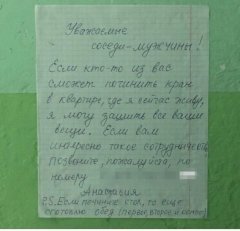 Уважаемые
соседи-мужчины!
Если кто-то из вас
сможет починить кран
в квартире, где я сейчас живу,
я могу зашить все ваши
вещи. Если вам
интересно такое сотрудничество,
позвоните, пожалуйста, по
номеру
Анастасия
P.S. Если почините стол, то еще
приготовлю обед (первое, второе и компот)